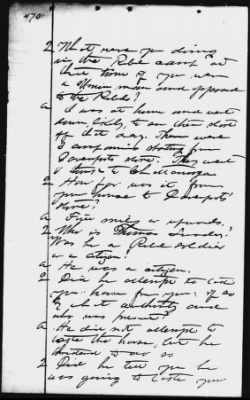 470
Q What were you doing
in the Rebel camp at
that time if you were
a Union man and opposed
to the Rebels?
A I was at home and went
down to see them start
off that day. There were
2 companies starting from
Davenports store. They went
to Chattanooga
Q How far was it from
your house to Davenports
store?
A Five miles or upwards.
Q Who is Thomas
Was he a Rebel soldier
or a citizen?
A He was a citizen.
Q Did he attempt to take
your horse from you: if so
by what authority and
who was present?
A He did not attempt to
take the horse, but he
threatened to do so
Q Did he tell you he
was going to take your